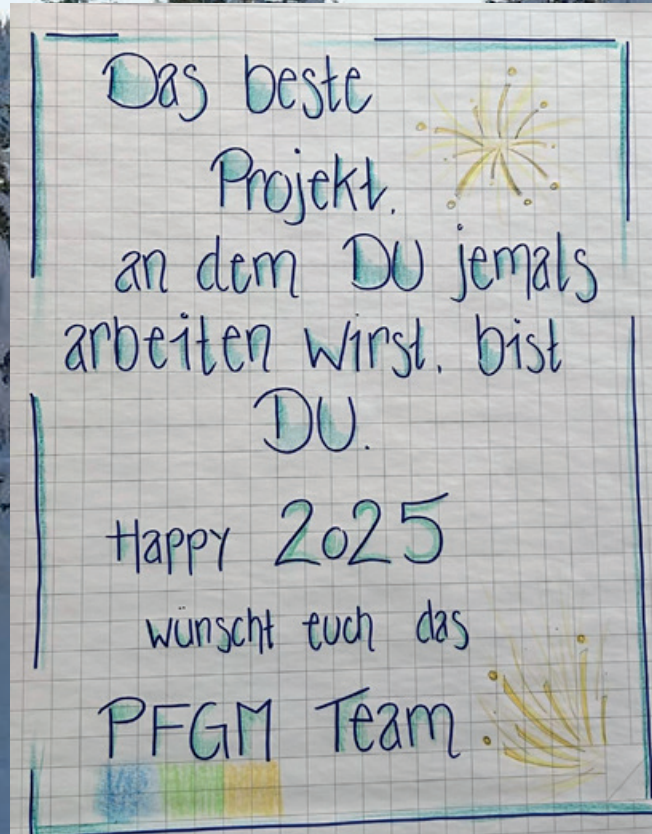 Das beste
Projekt,
an dem DU jemals
arbeiten wirst, bist
DU.
Happy 2025
wünscht euch das
PFGM Team